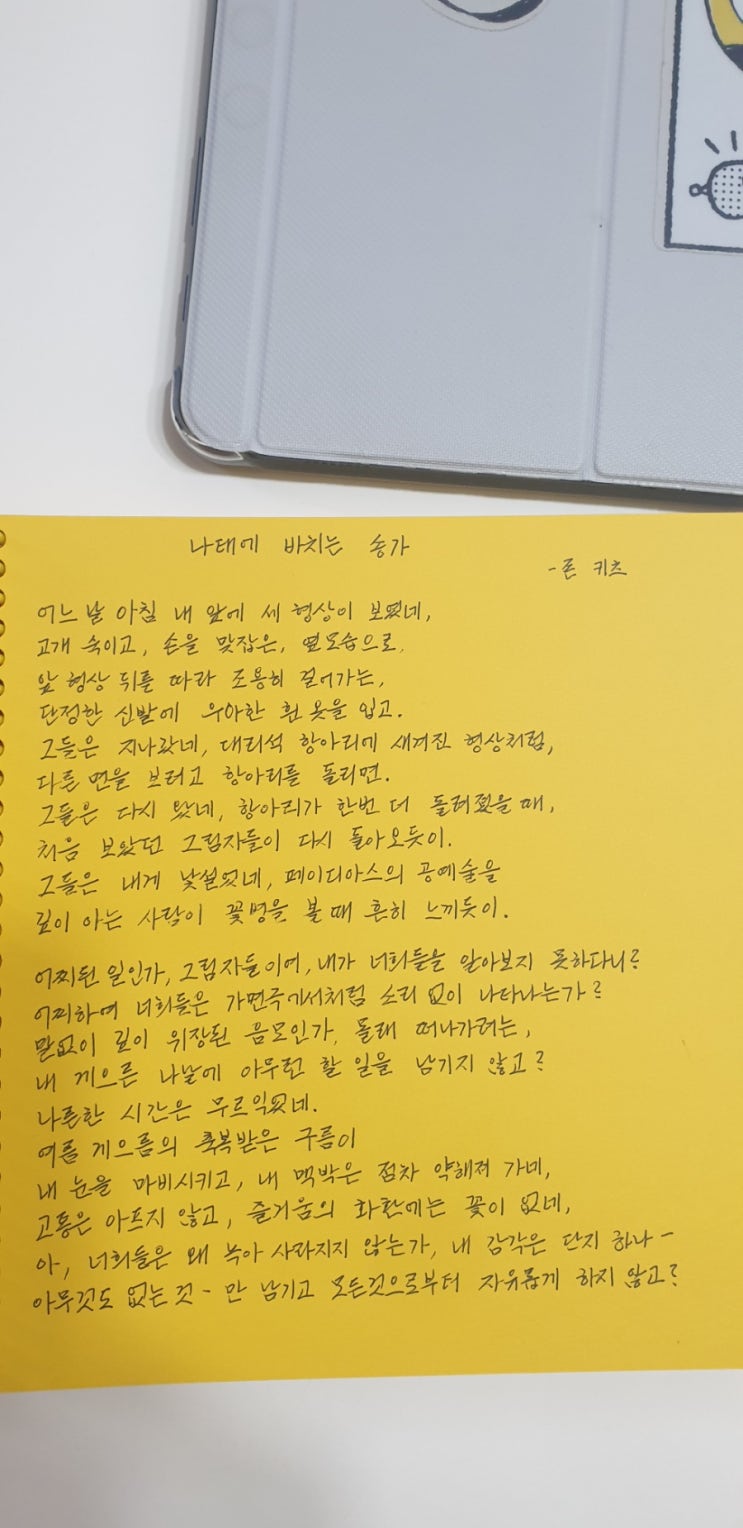 나태에 바치는 송가
-존 키츠
어느 날 아침 내 앞에 세 형상이 보였네,
고개 숙이고, 손을 맞잡은, 옆모습으로,
앞 형상 뒤를 따라 조용히 걸어가는,
단정한 신발에 우아한 흰 옷을 입고.
그들은 지나갔네, 대리석 항아리에 새겨진 형상처럼,
다른 면을 보려고 항아리를 돌리면.
그들은 다시 왔네, 항아리가 한번 더 돌려졌을 때,
처음 보았던 그림자들이 다시 돌아오듯이.
그들은 내게 낯설었네, 페이디아스의 공예술을
깊이 아는 사람이 꽃병을 볼 때 흔히 느끼듯이.
어찌된 일인가, 그림자들이여, 내가 너희들을 알아보지 못하다니?
어찌하여 너희들은 가면극에서처럼 소리 없이 나타나는가?
말없이 깊이 위장된 음모인가, 몰래 떠나가려는,
내 게으른 나날에 아무런 할 일을 남기지 않고?
나른한 시간은 무르익었네.
여름 게으름의 축복받은 구름이
내 눈을 마비시키고, 내 맥박은 점차 약해져 가네,
고통은 아프지 않고, 즐거움의 화환에는 꽃이 없네,
아, 너희들은 왜 녹아 사라지지 않는가, 내 감각은 단지 하나-
아무것도 없는 것- 만 남기고 모든것으로부터 자유롭게 하지 않고?